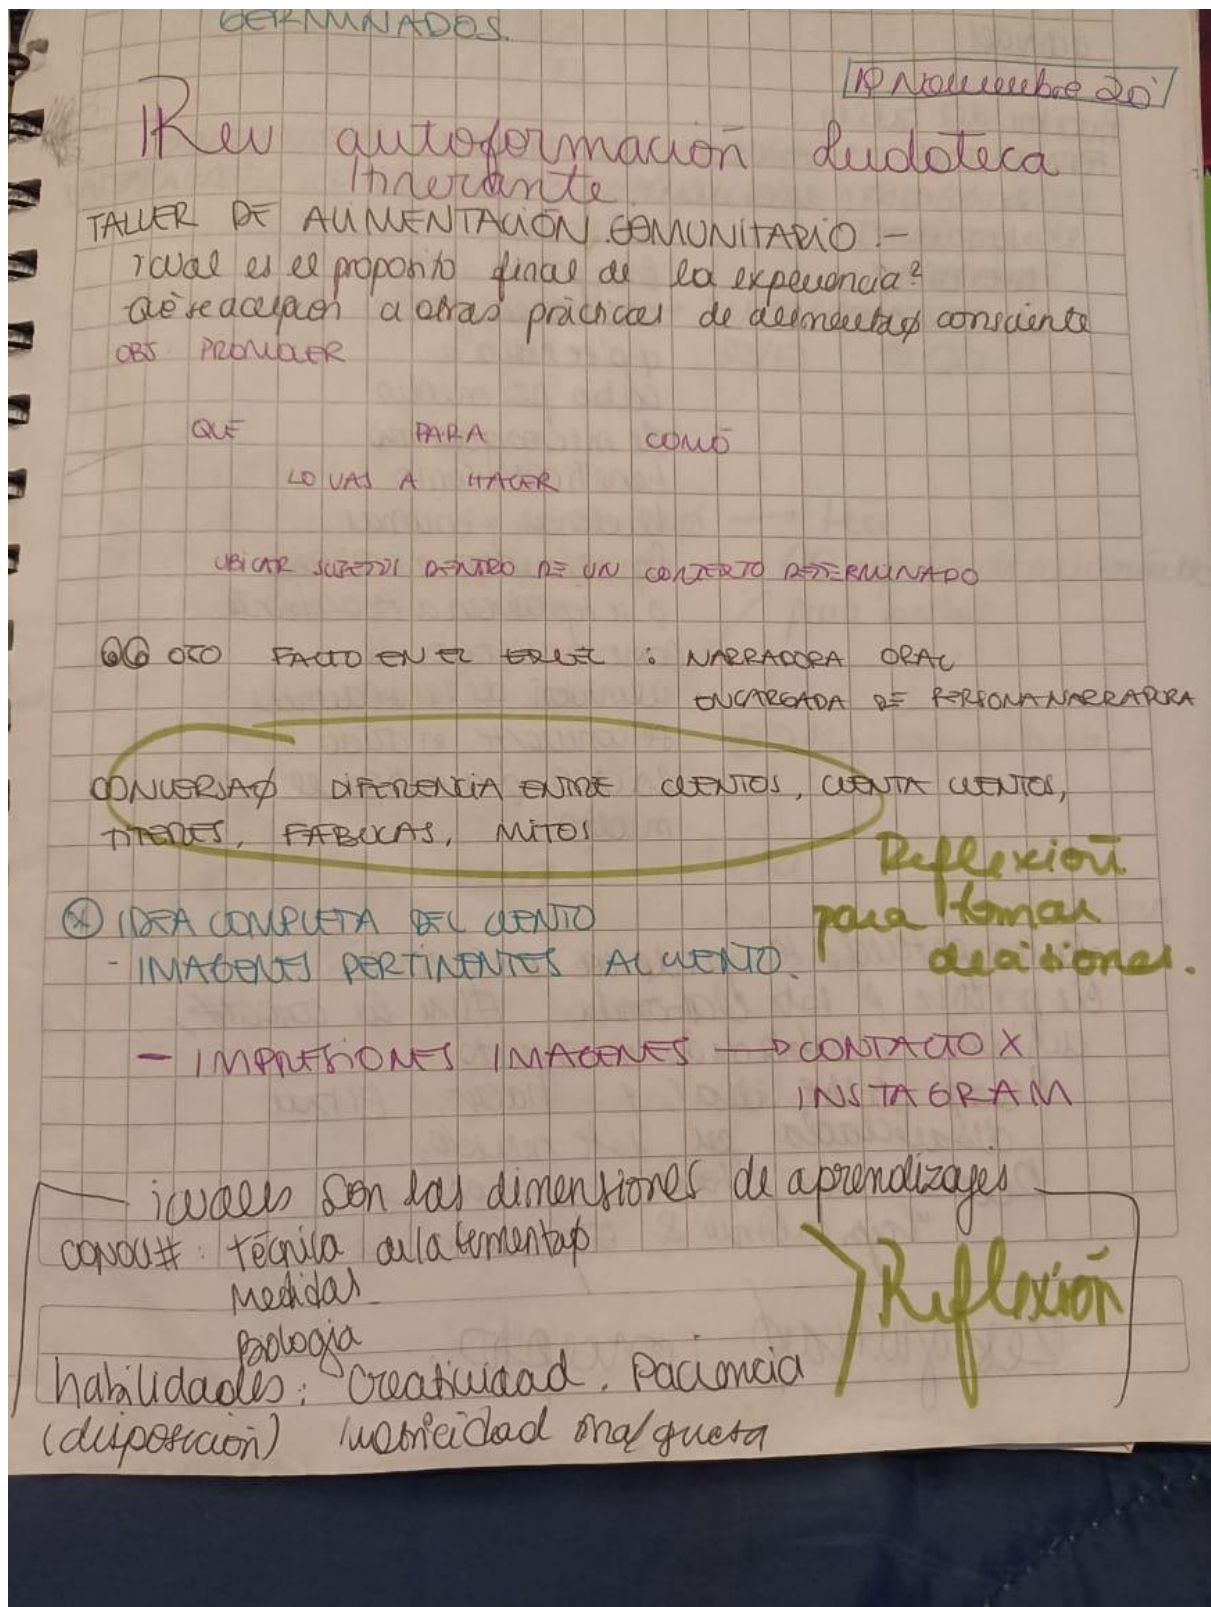 GERMINADOS.
19 Noviembre 20
Reu autoformación Ludoteca
Itinerante
TALLER DE ALIMENTACIÓN COMUNITARIO -
¿cual es el proposito final de la experiencia?
Què se acerquen a otras prácticas de consciente
OBJ PROMOVER
QUÉ PARA COMÓ
LO VAS A HACER
UBICAR SUJETOS DENTRO DE UN CONTEXTO DETERMINADO
OJO FALTO EN EL : NARRADORA ORAL
ENCARGADA DE PERSONA NARRADORA
CONVERSAꞨ DIFERENCIA ENTRE CUENTOS, CUENTA CUENTOS,
TITERES, FÁBULAS, MITOS
Reflexión
para tomar
decisiones.
IDEA COMPLETA DEL CUENTO
- IMAGENES PERTINENTES AL CUENTO.
- IMPRESIONES IMAGENES → CONTACTO X
INSTAGRAM
¿cuales son las dimensiones de aprendizajes
técnica
Medidas
Biologia
Reflexión
habilidades: Creatividad. Paciencia
(disposición) motricidad ona/gruesa